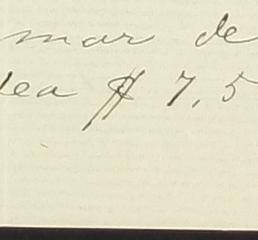 mar de
lea $ 7,5